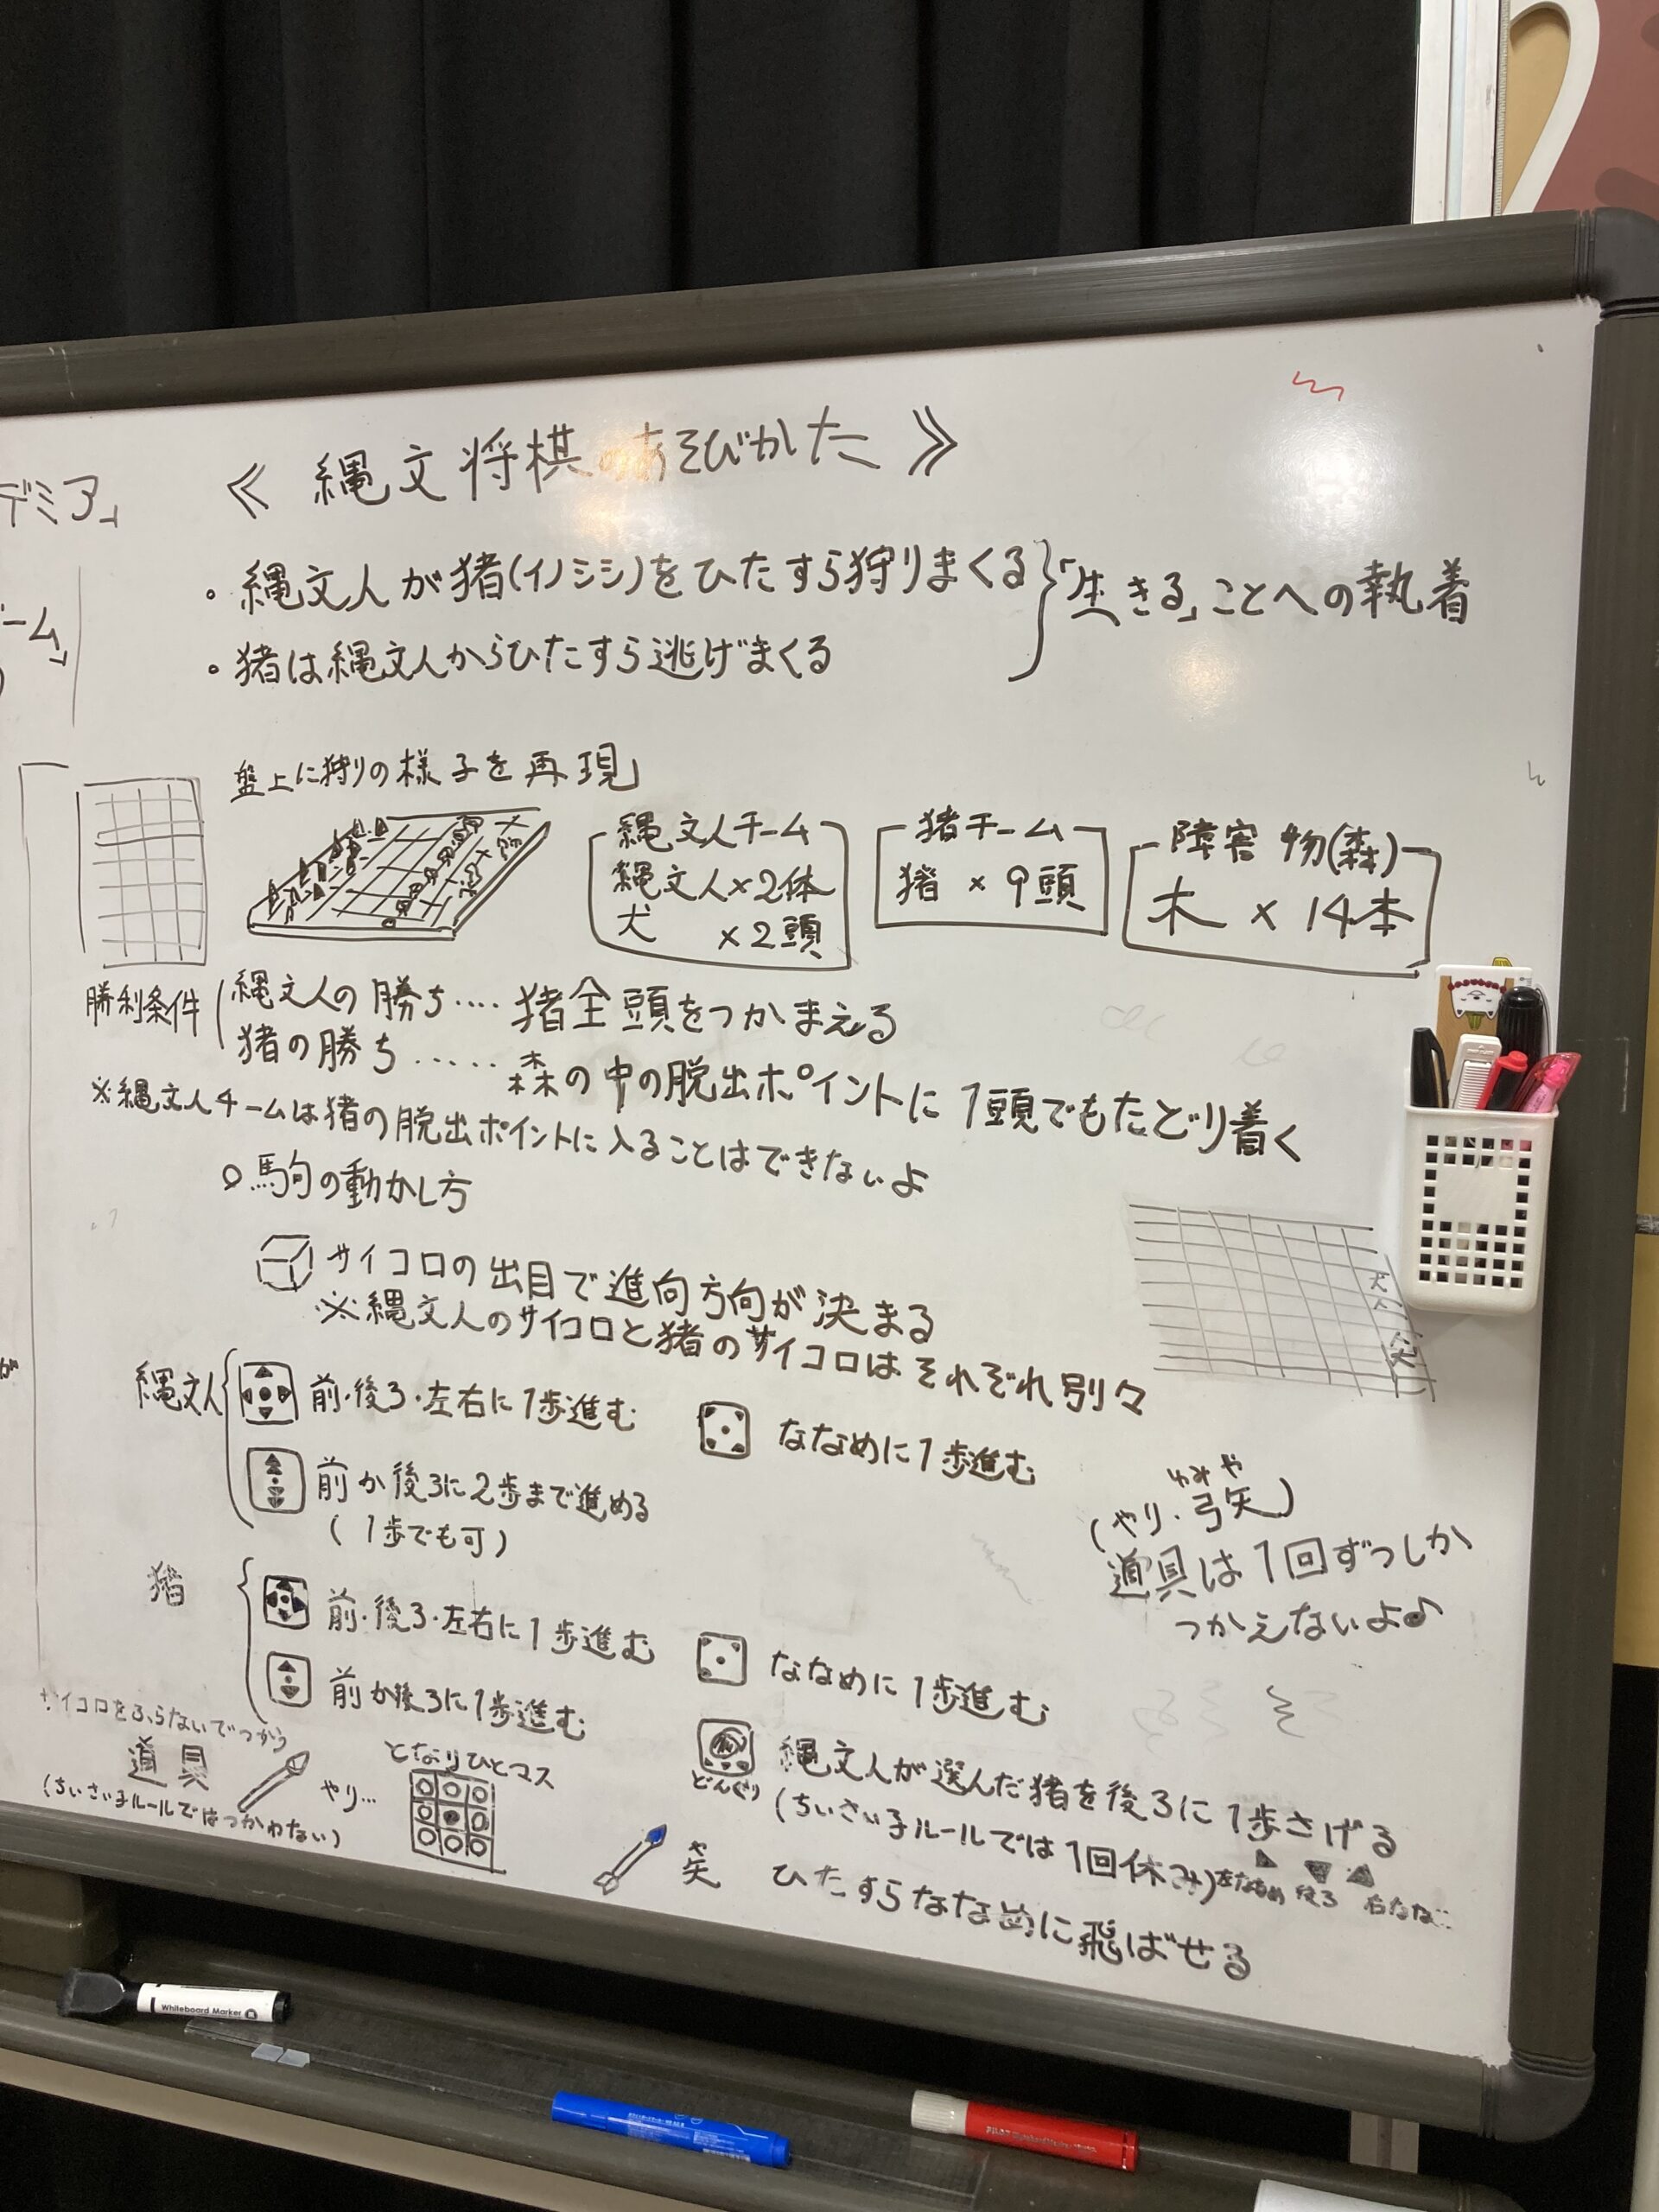 デミア」
ーム」
《 縄文将棋のあそびかた 》
・縄文人が猪(イノシシ)をひたすら狩りまくる
・猪は縄文人からひたすら逃げまくる
「生きる」ことへの執着
盤上に狩りの様子を再現
縄文人チーム
縄文人×2体
犬 ×2頭
猪チーム
猪 × 9頭
障害物(森)
木 × 14本
勝利条件
縄文人の勝ち‥‥ 猪全頭をつかまえる
猪の勝ち‥‥‥ 森の中の脱出ポイントに1頭でもたどり着く
※縄文人チームは猪の脱出ポイントに入ることはできないよ
○駒の動かし方
サイコロの出目で進向方向が決まる
※縄文人のサイコロと猪のサイコロはそれぞれ別々
縄文人
前・後ろ・左右に1歩進む
ななめに1歩進む
前か後ろに2歩まで進める
(1歩でも可)
ゆみや
(やり・弓矢)
道具は1回ずつしか
つかえないよ♪
猪
前・後ろ・左右に1歩進む
ななめに1歩進む
前か後ろに1歩進む
どんぐり
縄文人が選んだ猪を後ろに1歩さげる
(ちいさい子ルールでは1回休み)
左ななめ 後ろ 右なな
サイコロをふらないでつかう
道具
(ちいさい子ルールではつかわない)
やり…
となりひとマス
や
矢 ひたすらななめに飛ばせる
Whiteboard Marker